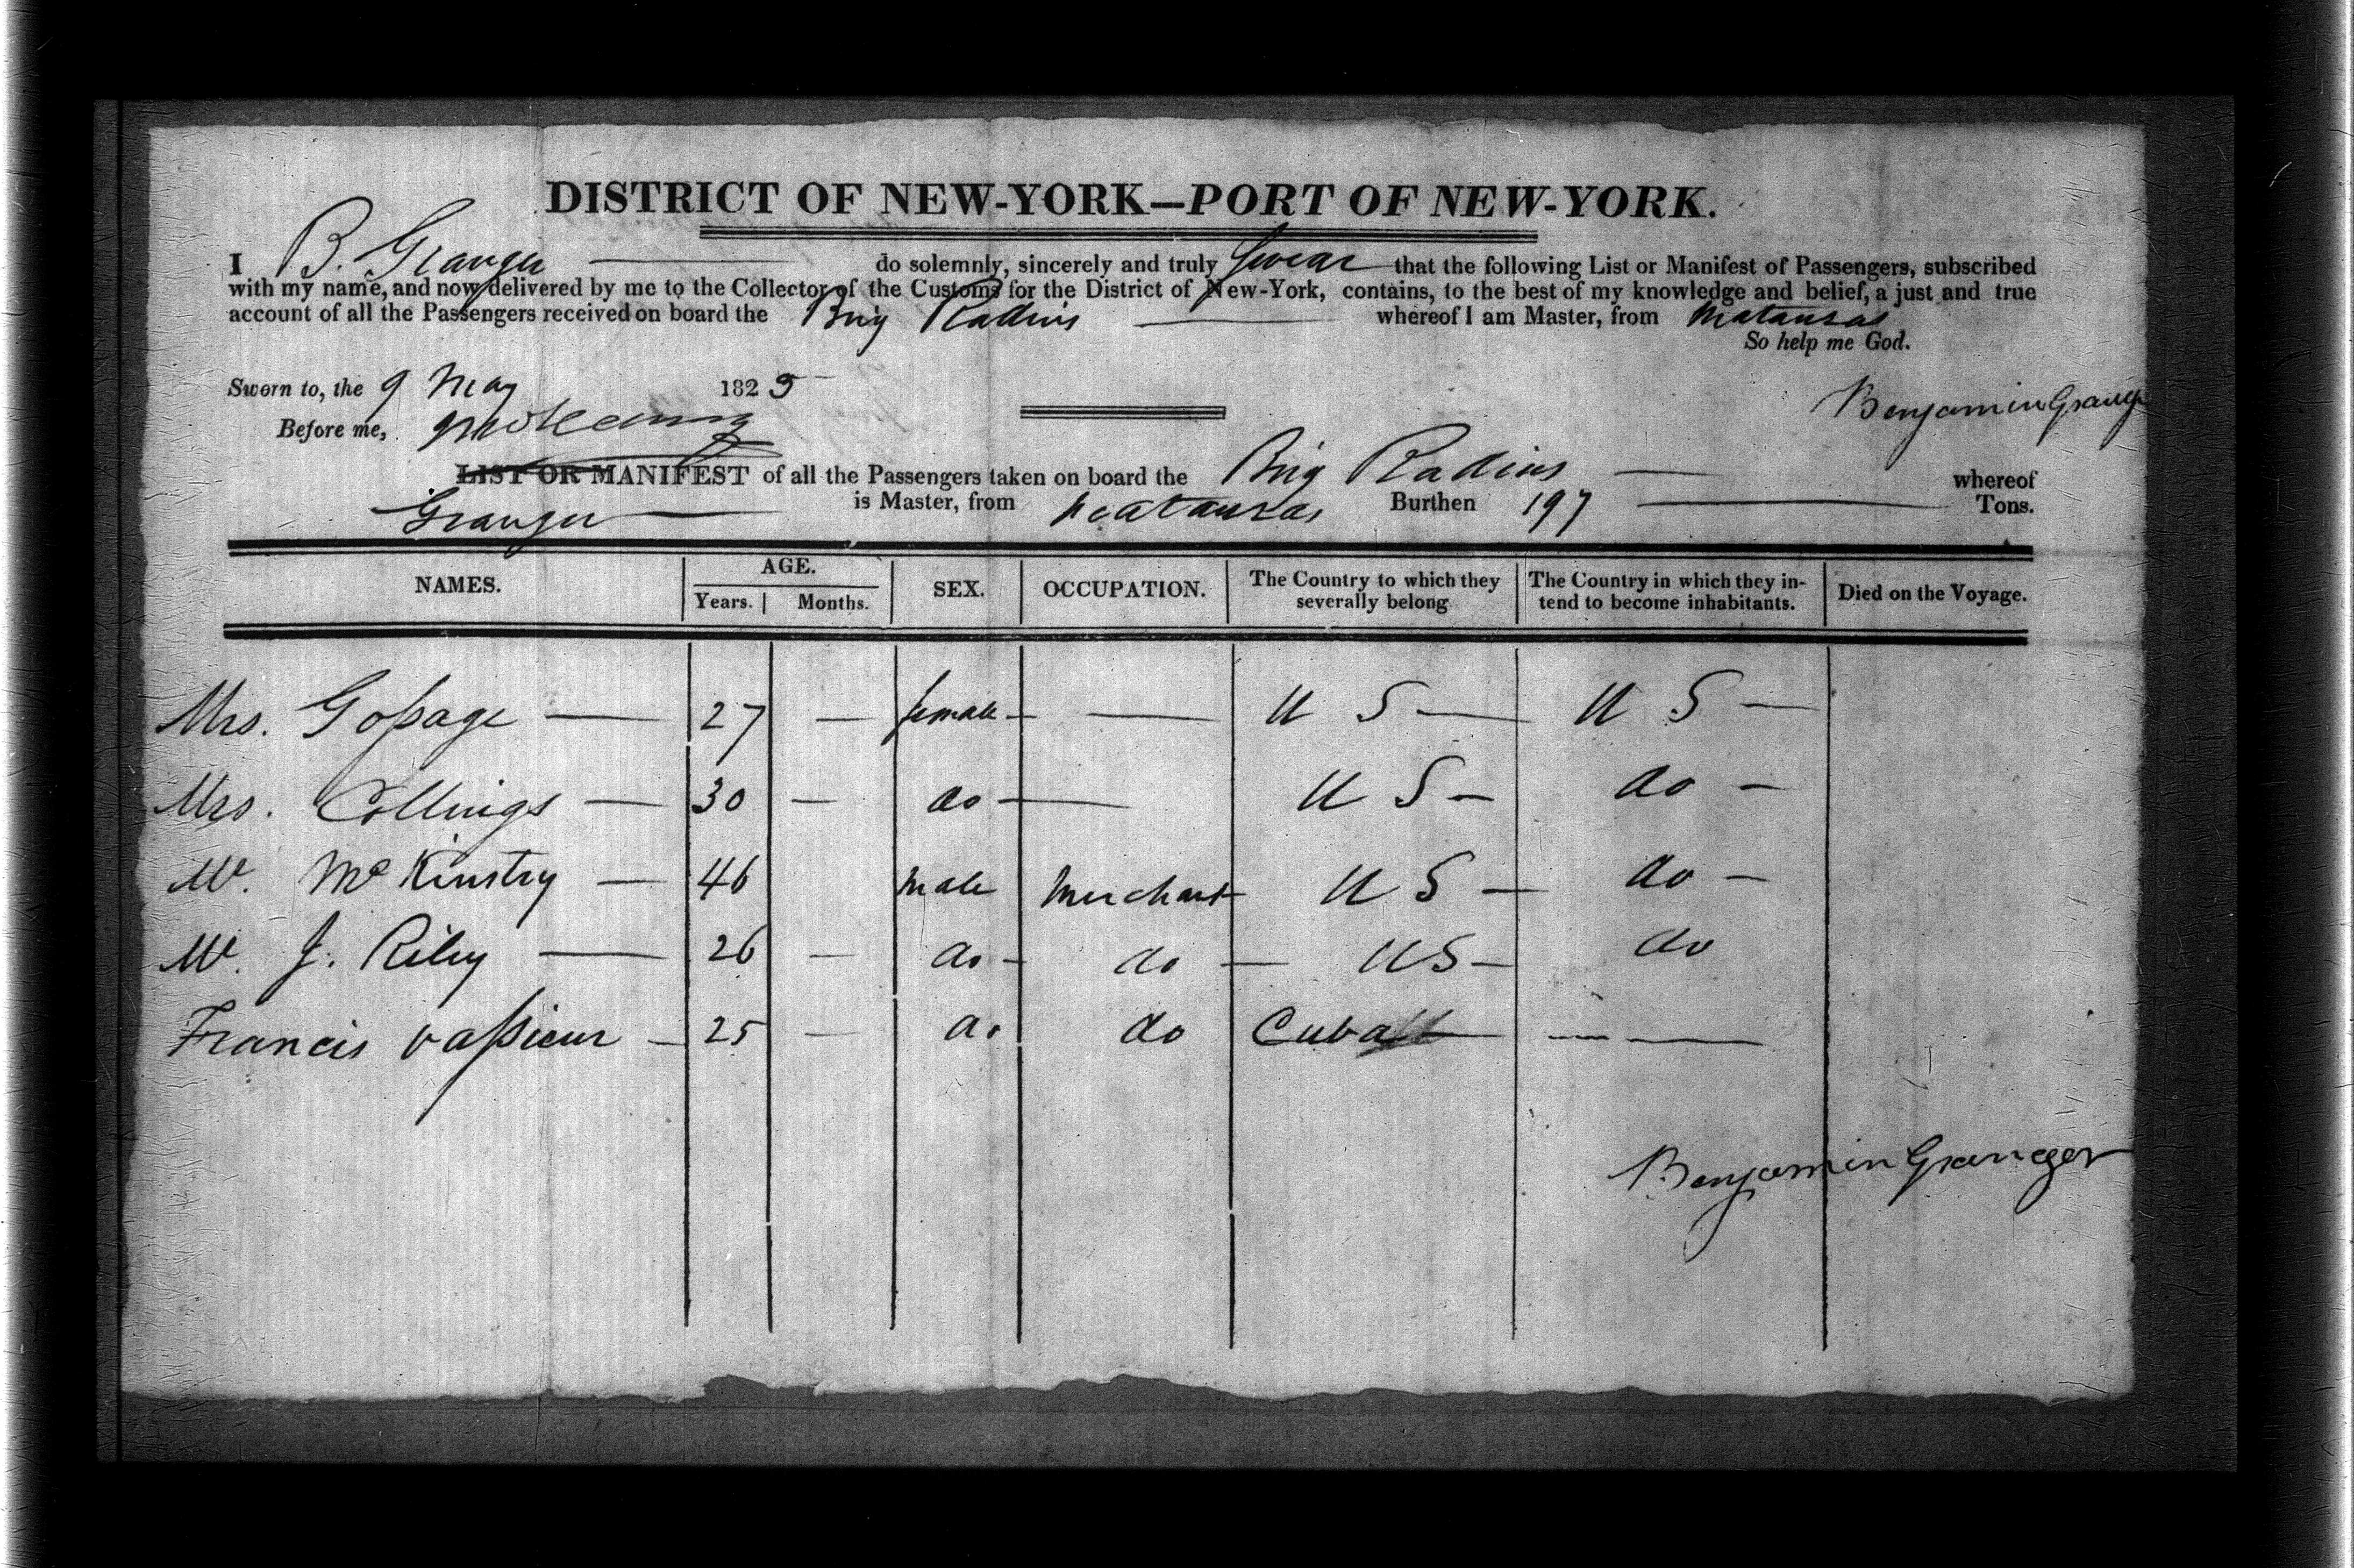 DISTRICT OF NEW-YORK—PORT OF NEW-YORK.
I B. Granger do solemnly, sincerely and truly Swear that the following List or Manifest of Passengers, subscribed
with my name, and now delivered by me to the Collector of the Customs for the District of New-York, contains, to the best of my knowledge and belief, a just and true
account of all the Passengers received on board the Brig Radius whereof I am Master, from Matanzas
So help me God.
Sworn to, the 9 May 1825
Benjamin Granger
Before me,
LIST OR MANIFEST of all the Passengers taken on board the Brig Radius whereof
Granger is Master, from Matanzas Burthen 197 Tons.
NAMES. AGE. Years. Months. SEX. OCCUPATION. The Country to which they severally belong. The Country in which they intend to become inhabitants. Died on the Voyage.
Mrs. Goſsage — 27 — female — — U S — U S —
Mrs. Collings — 30 — do — U S — do —
Mr. McKinstry — 46 male Merchant U S — do —
Mr. J. Riley — 26 — do — do — US — do
Francis Vaſsieur — 25 — do do Cuba — —
Benjamin Granger